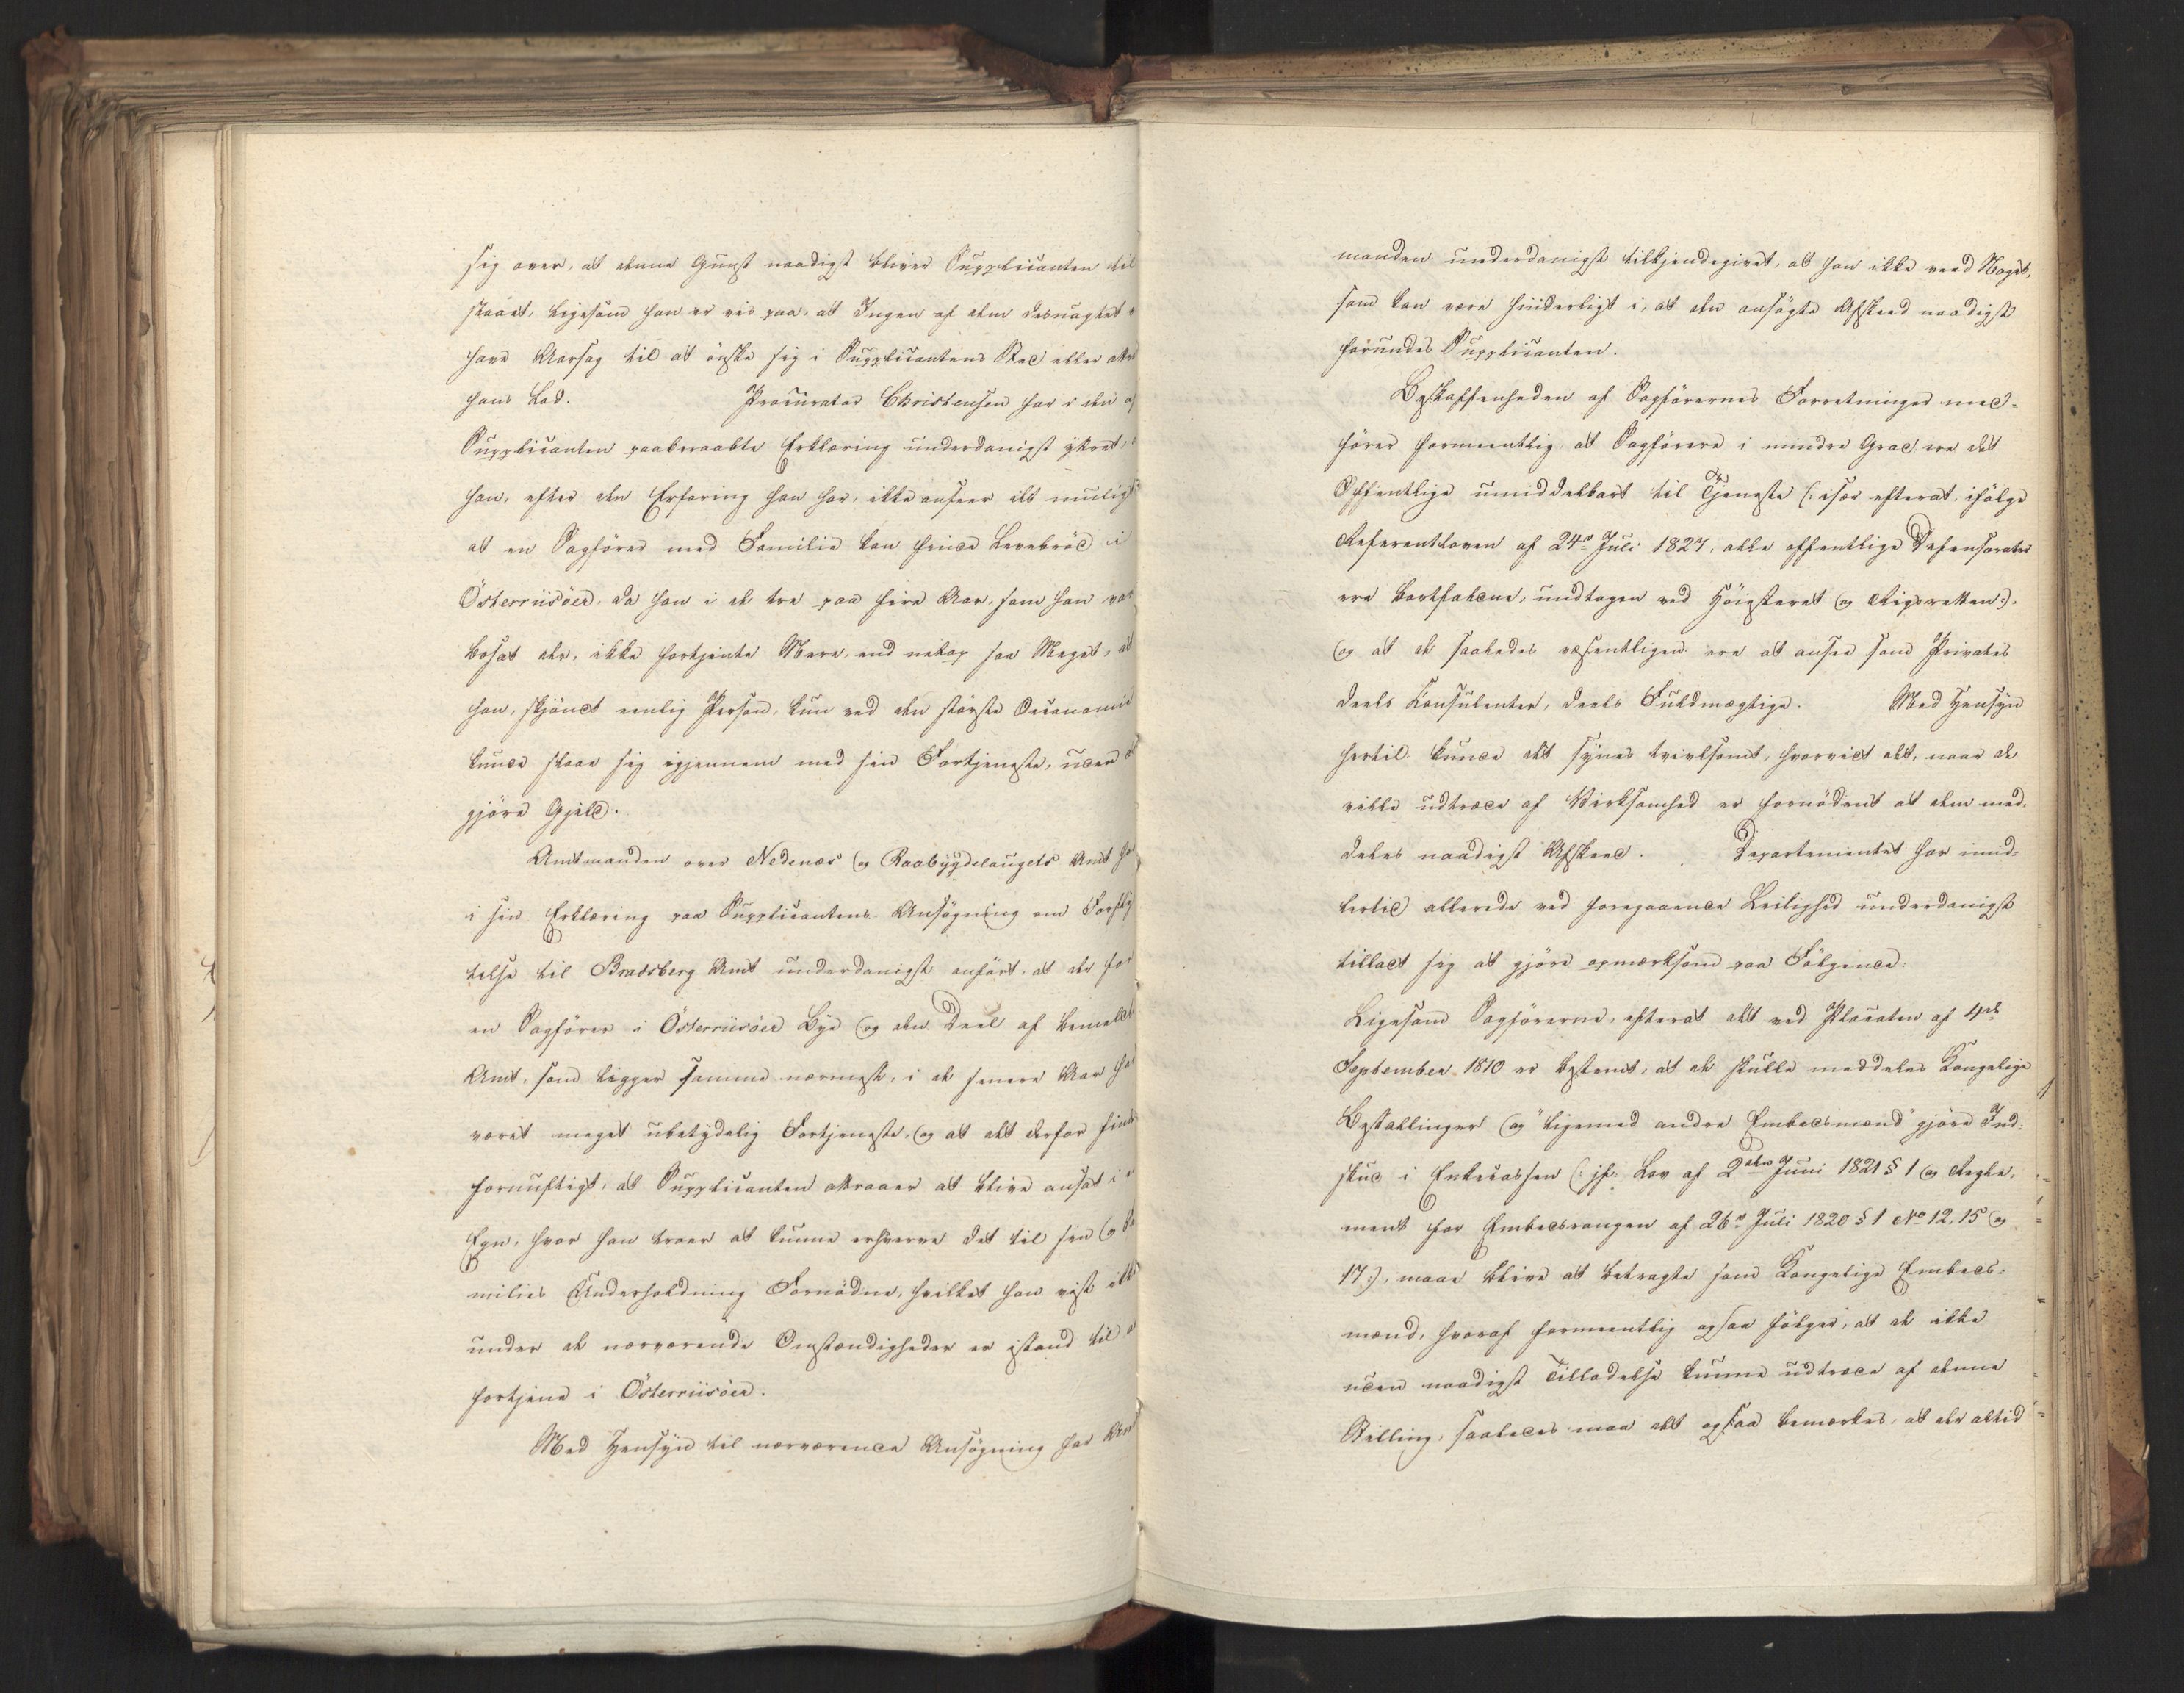 sig over, at denne Gunst naadigst bliver Supplicanten til
staaet, ligesom han er vis paa, at Ingen af dem desuagtet
have Aarsag til at önske sig i Supplicantens Sted eller
hans Lod. Procurator Christensen har i den af
Supplicanten paaberaabte Erklæring underdanigst yttret,
han, efter den Erfaring han har, ikke anseer det muligt
at en Sagförer med Familie kan finde Levebröd i
Österriisöer, da han i de tre paa fire Aar, som han var
bosat der, ikke fortjente Mere, end netop saa Meget, at
han, skjöndt eenlig Person, kun ved den störste Oeconomie
kunde slaae sig igjennem med sin Fortjeneste, uden at
gjöre Gjeld.
Amtmanden over Nedenæs og Raabÿgdelaugets Amt har
i sin Erklæring paa Supplicantens Ansögning om Forflyt
telse til Bradsberg Amt underdanigst anfört, at der for
en Sagförer i Österriisöer Bye og den Deel af bemeldte
Amt, som ligger samme nærmest, i de senere Aar har
været meget ubetydelig Fortjeneste, og at det derfor findes
fornuftigt, at Supplicanten attraaer at blive ansat i en
Egn, hvor han troer at kunne erhverve det til sin og Fa
milies Underholdning Fornödne, hvilket han vist ikke
under de nærværende Omstændigheder er istand til at
fortjene i Österriisöer.
Med Hensÿn til nærværende Ansögning har Amt
manden underdanigst tilkjendegivet, at han ikke veed Noget,
som kan være hinderligt i, at den ansögte Afskeed naadigst
forundes Supplicanten.
Beskaffenheden af Sagförernes Forretninger med-
förer formeentlig, at Sagförere i mindre Grad ere det
Offentlige umiddelbart til Tjeneste (: især efterat, ifölge
Referentloven af 24de Juli 1827, alle offentlige Defensorater
ere bortfaldne, undtagen ved Höiesteret og Rigsretten :),
og at de saaledes væsentligen ere at ansee som Privates
deels Konsulenter, deels Fuldmægtige. Med Hensÿn
hertil kunde det synes tvivlsomt, hvorvidt det, naar de
ville udtræde af Virksomhed er fornödent at dem med-
deles naadigst Afskeed. Departementet har imid-
lertid allerede ved foregaaende Leilighed underdanigst
tilladt sig at gjöre opmærksom paa Fölgende:
Ligesom Sagförerne, efterat det ved Placaten af 4de
September 1810 er bestemt, at de skulle meddeles Kongelige
Bestallinger og "ligemed andre Embedsmænd" gjöre Ind-
skud i Enkecassen (: jfr. Lov af 2den Juni 1821 § 1 og Regle-
ment for Embedsrangen af 26de Juli 1820 § 1 No 12, 15 og
17 :), maae blive at betragte som Kongelige Embeds-
mænd, hvoraf formeentlig ogsaa fölger, at de ikke
uden naadigst Tilladelse kunne udtræde af denne
Stilling, saaledes maa det ogsaa bemærkes, at der altid